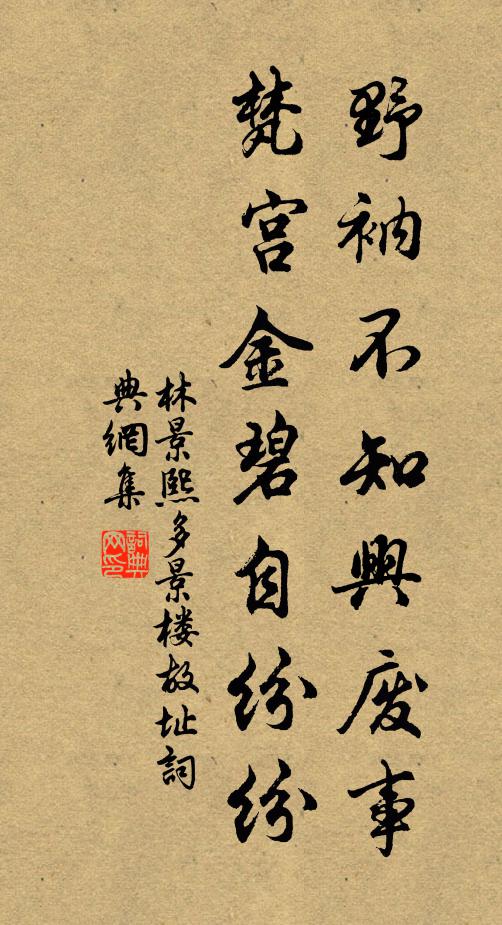 野衲不知興廢事
梵宮金碧自紛紛
林景熙多景楼故址詞
典網集
詞典网印